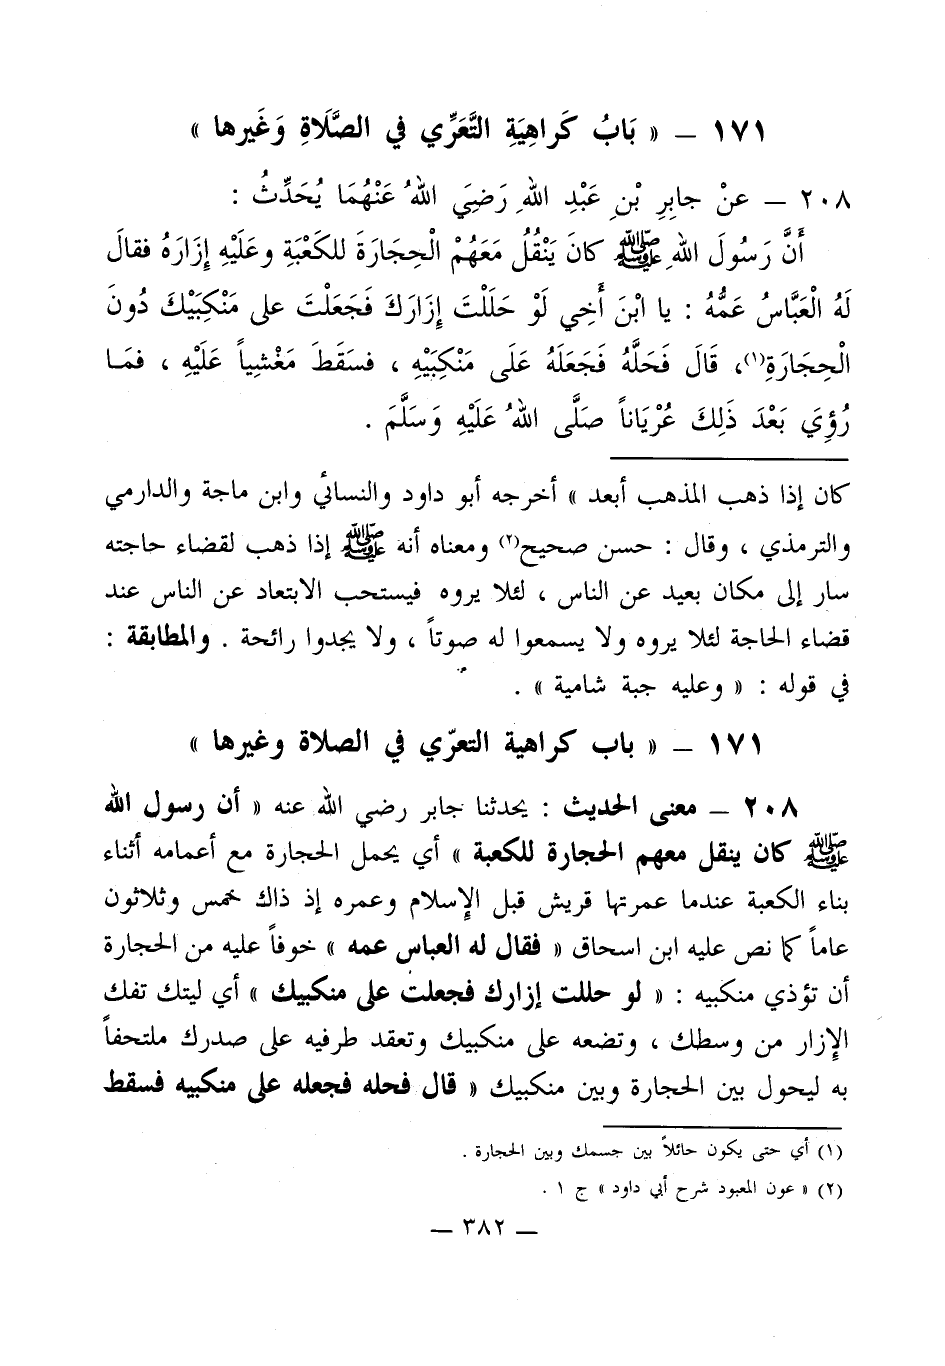 ١٧١ ــ « بَابُ كَرَاهِيَةِ التَّعَرِّي في الصَّلَاةِ وَغَيرها »
٢٠٨ ــ عنْ جابِرِ بْنِ عَبْدِ اللهِ رَضِيَ اللهُ عَنْهُمَا يُحَدِّثُ :
أَنَّ رَسُولَ اللهِ ﷺ كانَ يَنْقُلُ مَعَهُمْ الْحِجَارَةَ للكَعْبَةِ وعَلَيْهِ إِزَارَهُ فقالَ
لَهُ الْعَبَّاسُ عَمُّهُ : يا ابْنَ أَخِي لَوْ حَلَلْتَ إِزَارَكَ فَجَعَلْتَ على مَنْكِبَيْكَ دُونَ
الْحِجَارَةِ(١)، قَالَ فَحَلَّهُ فَجَعَلَهُ عَلَى مَنْكِبَيْهِ ، فسَقَطَ مَغْشِياً عَلَيْهِ ، فمَا
رُؤِيَ بَعْدَ ذَلِكَ عُرْيَاناً صَلَّى اللهُ عَلَيْهِ وَسَلَّمَ .
كان إذا ذهب المذهب أبعد » أخرجه أبو داود والنسائي وابن ماجة والدارمي
والترمذي ، وقال : حسن صحيح(٢) ومعناه أنه ﷺ إذا ذهب لقضاء حاجته
سار إلى مكان بعيد عن الناس ، لئلا يروه فيستحب الابتعاد عن الناس عند
قضاء الحاجة لئلا يروه ولا يسمعوا له صوتاً ، ولا يجدوا رائحة . والمطابقة :
في قوله : « وعليه جبة شامية » .
١٧١ ــ « باب كراهية التعرّي في الصلاة وغيرها »
٢٠٨ ــ معنى الحديث : يحدثنا جابر رضي الله عنه « أن رسول الله
ﷺ كان ينقل معهم الحجارة للكعبة » أي يحمل الحجارة مع أعمامه أثناء
بناء الكعبة عندما عمرتها قريش قبل الإسلام وعمره إذ ذاك خمس وثلاثون
عاماً كما نص عليه ابن اسحاق « فقال له العباس عمه » خوفاً عليه من الحجارة
أن تؤذي منكبيه : « لو حللت إزارك فجعلت على منكبيك » أي ليتك تفك
الإزار من وسطك ، وتضعه على منكبيك وتعقد طرفيه على صدرك ملتحفاً
به ليحول بين الحجارة وبين منكبيك « قال فحله فجعله على منكبيه فسقط
(١) أي حتى يكون حائلاً بين جسمك وبين الحجارة .
(٢) « عون المعبود شرح أبي داود » ج ١ .
ــ ٣٨٢ ــ